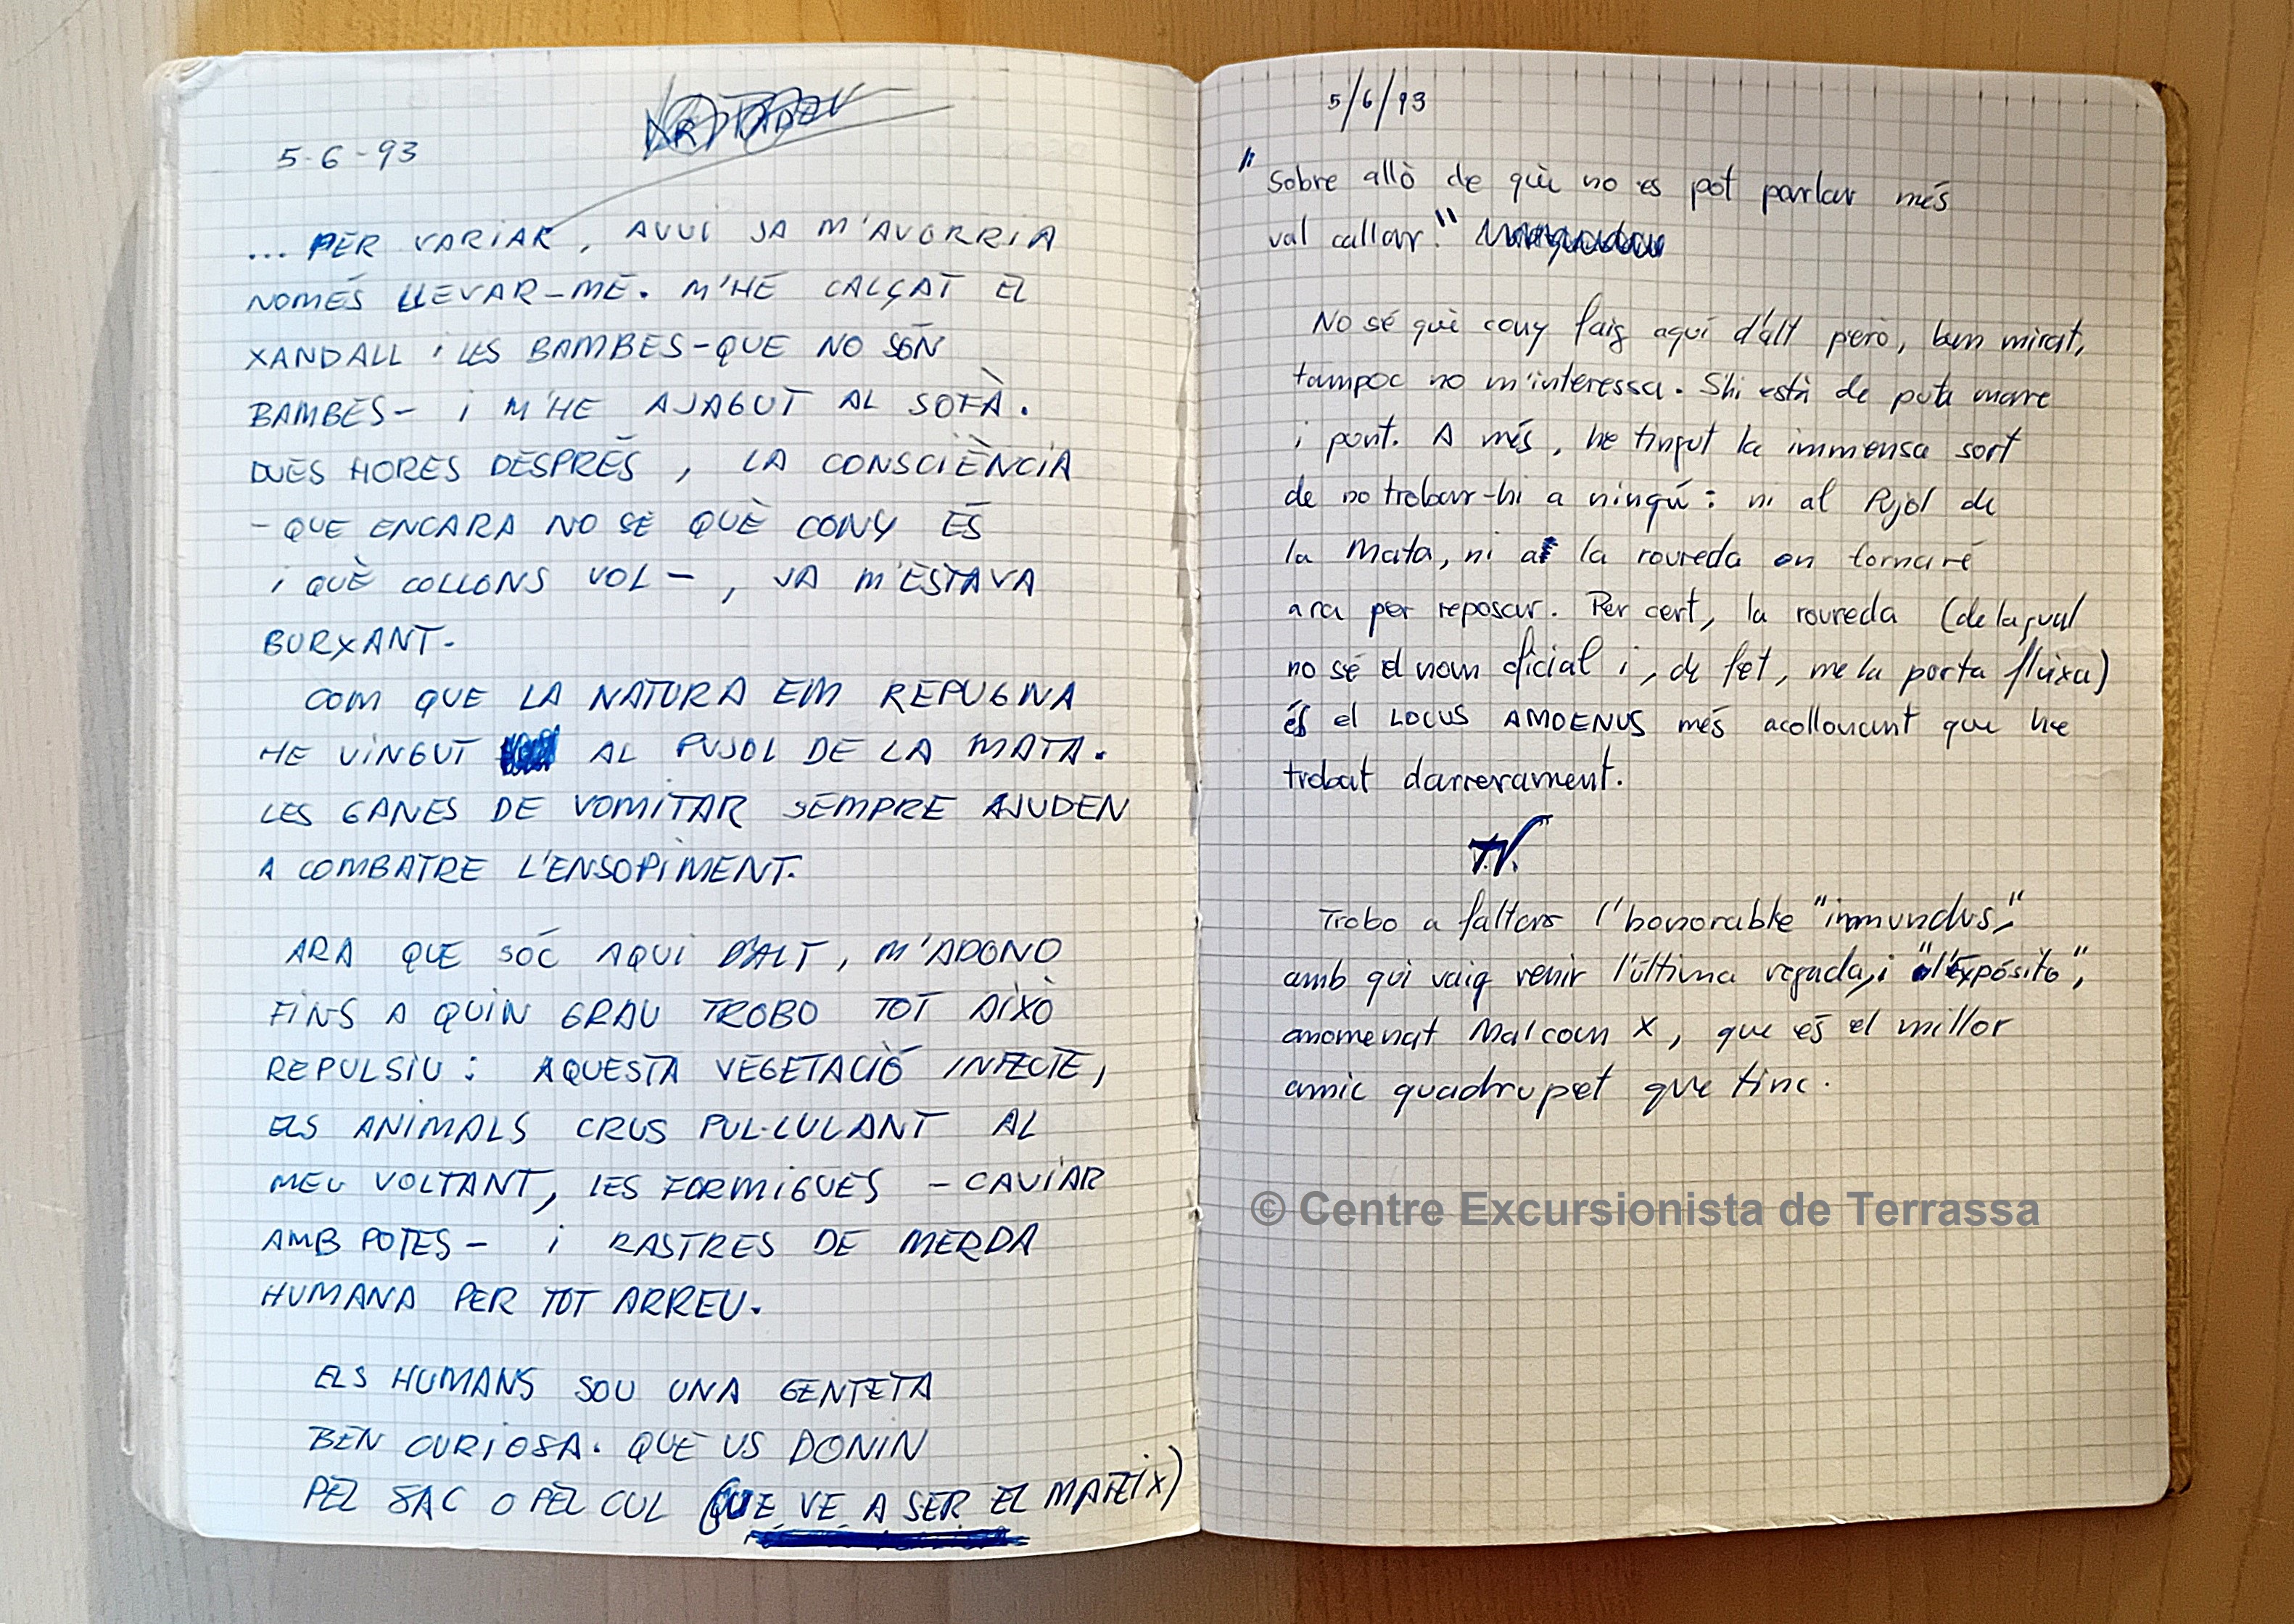 5-6-93
... PER VARIAR, AVUI JA M'AVORRIA
NOMÉS LLEVAR-ME. M'HE CALÇAT EL
XANDALL I LES BAMBES-QUE NO SÓN
BAMBES- I M'HE AJAGUT AL SOFÀ.
DUES HORES DESPRÉS, LA CONSCIÈNCIA
- QUE ENCARA NO SÉ QUÈ CONY ÉS
I QUÈ COLLONS VOL -, JA M'ESTAVA
BURXANT.
COM QUE LA NATURA EM REPUGNA
HE VINGUT AL PUJOL DE LA MATA.
LES GANES DE VOMITAR SEMPRE AJUDEN
A COMBATRE L'ENSOPIMENT.
ARA QUE SÓC AQUÍ D'ALT, M'ADONO
FINS A QUIN GRAU TROBO TOT AIXÒ
REPULSIU: AQUESTA VEGETACIÓ INFECTE,
ELS ANIMALS CRUS PUL·LULANT AL
MEU VOLTANT, LES FORMIGUES - CAVIAR
AMB POTES - I RASTRES DE MERDA
HUMANA PER TOT ARREU.
ELS HUMANS SOU UNA GENTETA
BEN CURIOSA. QUE US DONIN
PEL SAC O PEL CUL (QUE VE A SER EL MATEIX)
5/6/93
"Sobre allò de què no es pot parlar més
val callar."
No sé què cony faig aquí d'alt però, ben mirat,
tampoc no m'interessa. S'hi està de puta mare
i punt. A més, he tingut la immensa sort
de no trobar-hi a ningú: ni al Pujol de
la Mata, ni a la roureda on tornaré
ara per reposar. Per cert, la roureda (de la qual
no sé el nom oficial i, de fet, me la porta fluixa)
és el LOCUS AMOENUS més acollonant que he
trobat darrerament.
Trobo a faltar l'honorable "inmundus,"
amb qui vaig venir l'última vegada, i "l'Expósito",
anomenat Malcom X, que és el millor
amic quadrupet que tinc.
© Centre Excursionista de Terrassa